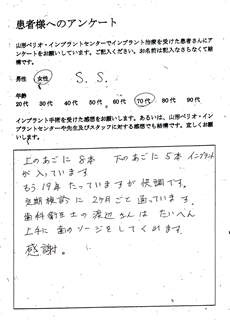 患者様へのアンケート
山形ペリオ・インプラントセンターでインプラント治療を受けた患者さんにア
ンケートをお願いしています。ご記入ください。お名前は記入なさらなくて結
構です。
男性 女性 S.S.
年齢
20代 30代 40代 50代 60代 70代 80代 90代
インプラント手術を受けた感想をお願いします。あるいは、山形ペリオ・イン
プラントセンターや先生及びスタッフに対する感想でも結構です。宜しくお願
いします。
上のあごに8本 下のあごに5本インプラント
が入っています
もう19年たっていますが快調です。
定期検診に2ヶ月ごと通っています。
歯科衛生士の渡辺さんはたいへん
上手に歯のソージをしてくれます。
感謝。